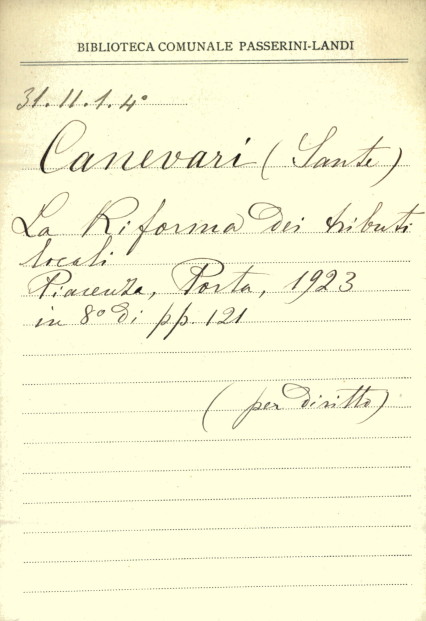 BIBLIOTECA COMUNALE PASSERINI-LANDI
31.11.1.4°
Canevari (Sante)
La Riforma dei tributi
locali
Piacenza, Porta, 1923
in 8° di pp. 121
(per diritto)